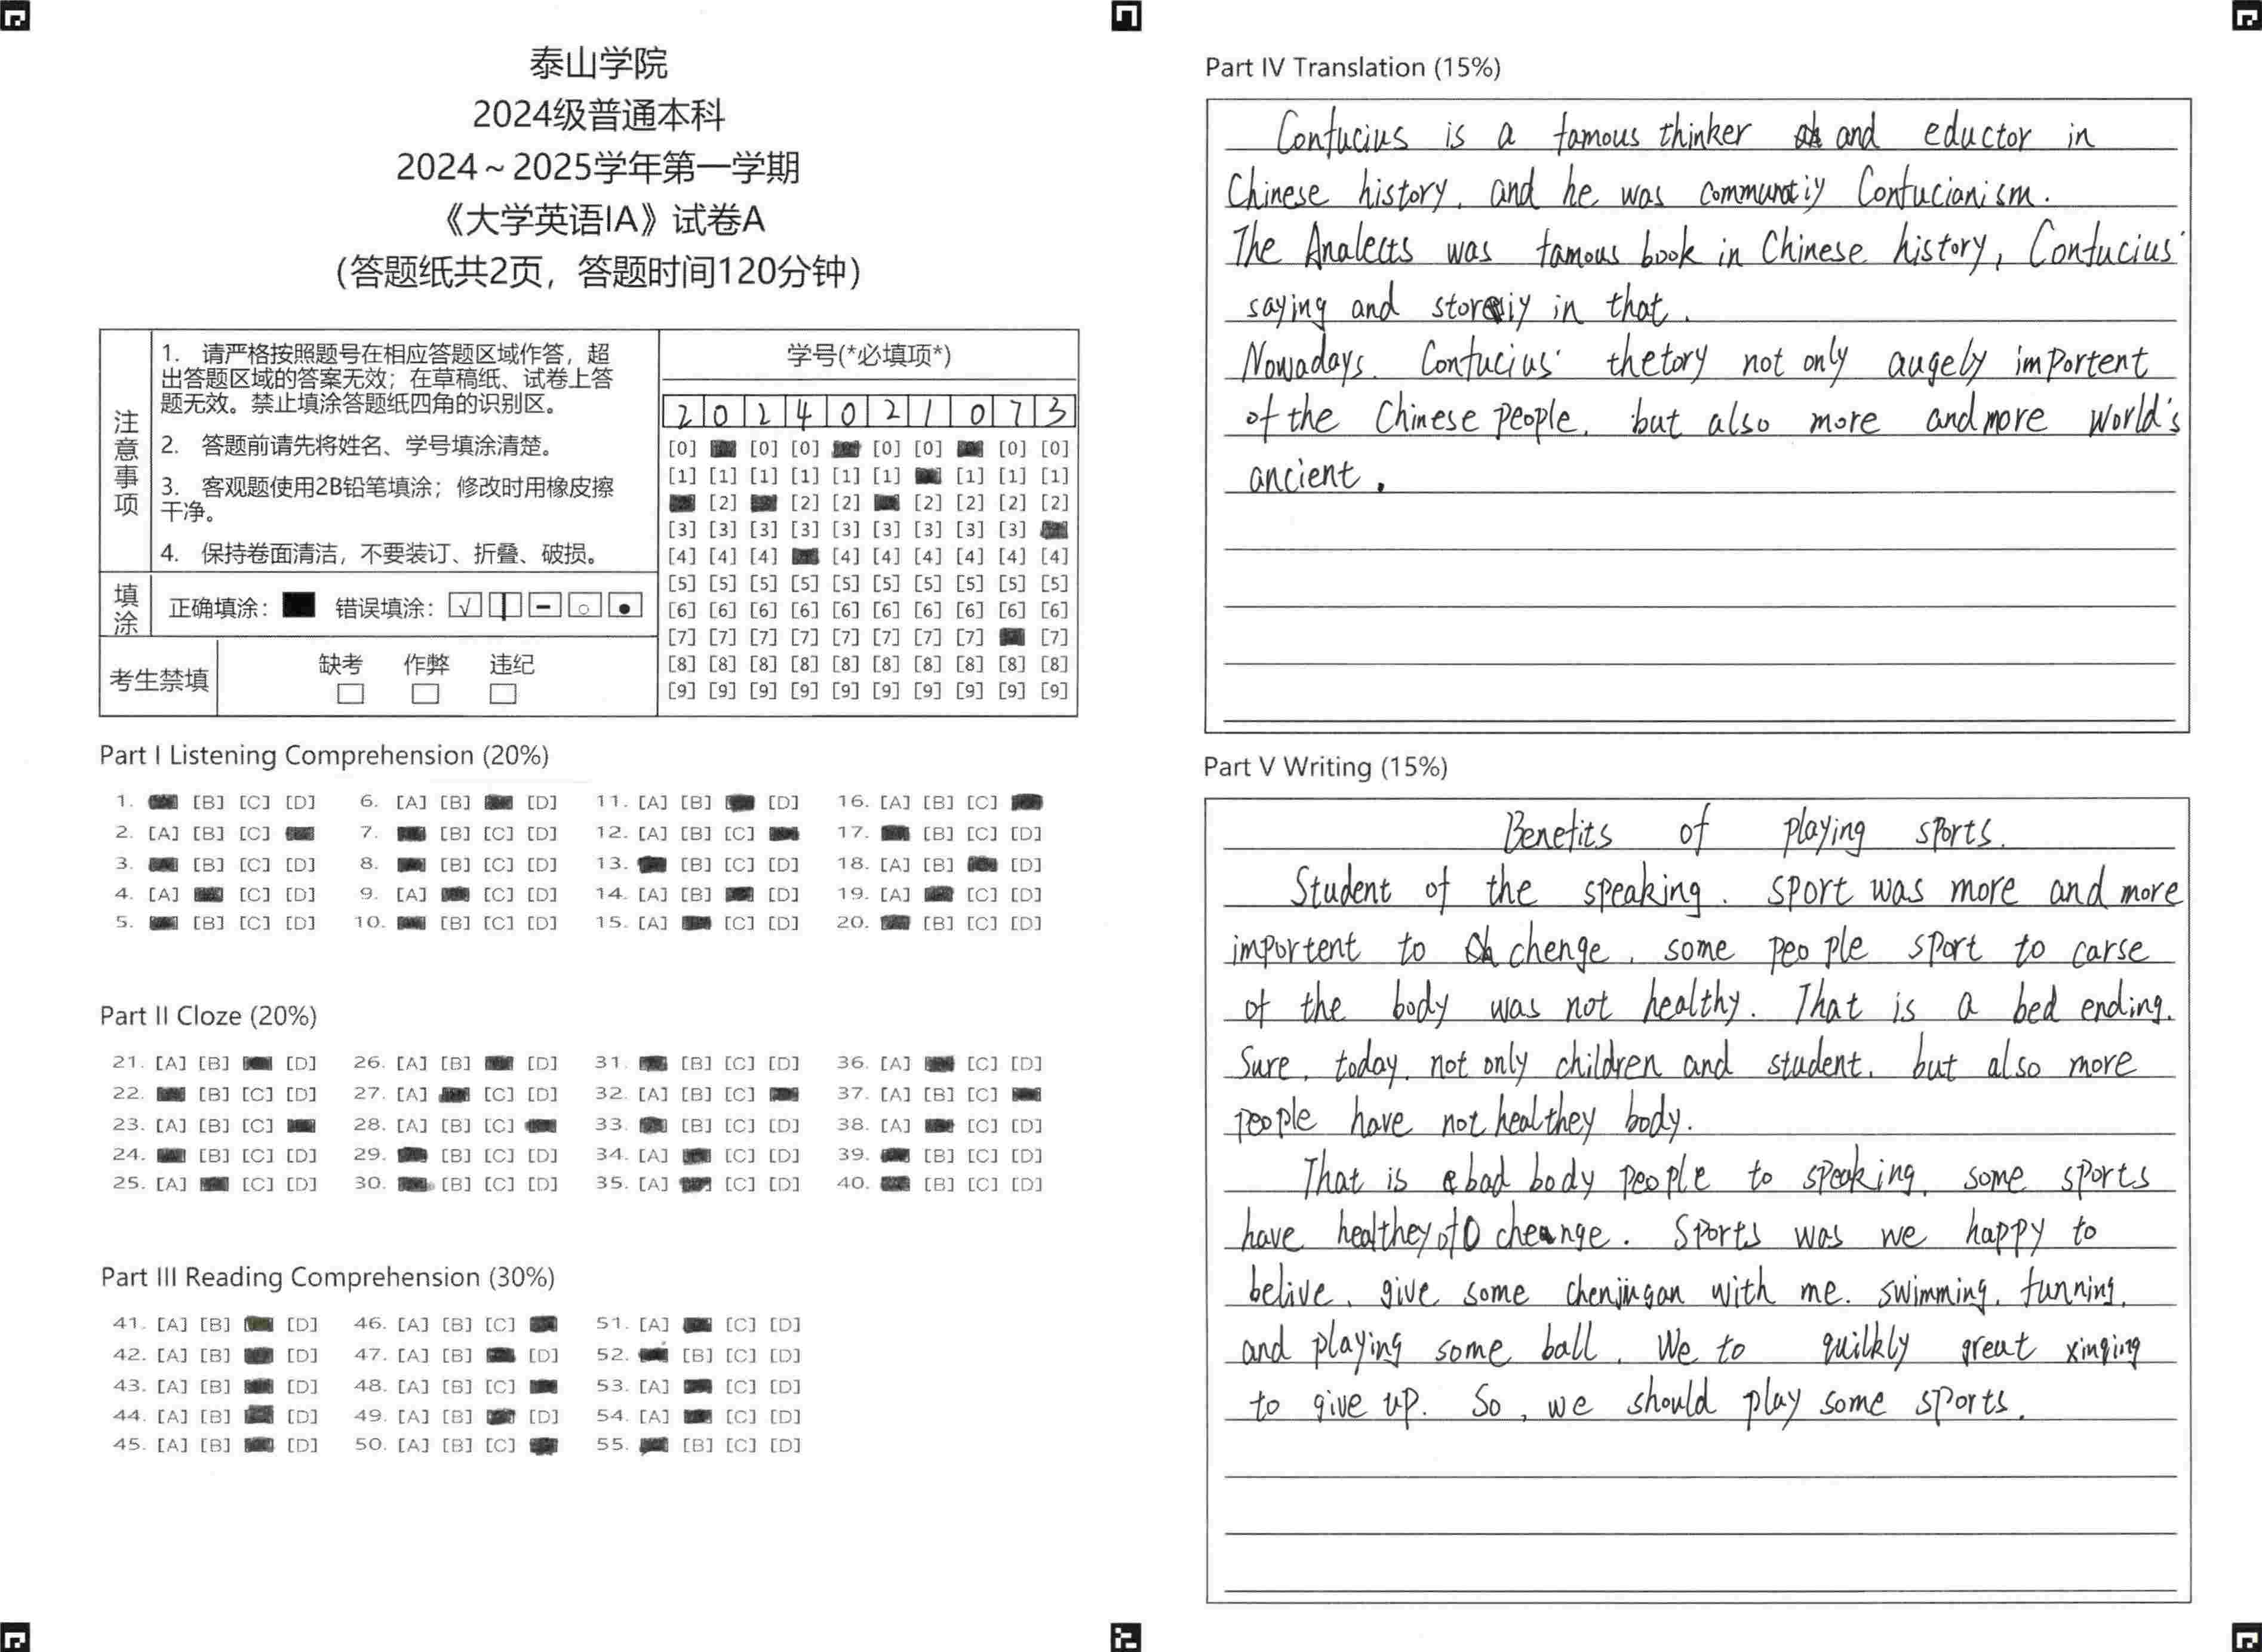 泰山学院
2024级普通本科
2024～2025学年第一学期
《大学英语IA》试卷A
（答题纸共2页，答题时间120分钟）
注意事项
1. 请严格按照题号在相应答题区域作答，超
出答题区域的答案无效；在草稿纸、试卷上答
题无效。禁止填涂答题纸四角的识别区。
2. 答题前请先将姓名、学号填涂清楚。
3. 客观题使用2B铅笔填涂；修改时用橡皮擦
干净。
4. 保持卷面清洁，不要装订、折叠、破损。
填涂 正确填涂： 错误填涂：
考生禁填 缺考 作弊 违纪
学号(*必填项*)
2 0 2 4 0 2 1 0 7 3
[0] [0] [0] [0] [0] [0] [0]
[1] [1] [1] [1] [1] [1] [1] [1] [1]
[2] [2] [2] [2] [2] [2] [2]
[3] [3] [3] [3] [3] [3] [3] [3] [3]
[4] [4] [4] [4] [4] [4] [4] [4] [4]
[5] [5] [5] [5] [5] [5] [5] [5] [5] [5]
[6] [6] [6] [6] [6] [6] [6] [6] [6] [6]
[7] [7] [7] [7] [7] [7] [7] [7] [7]
[8] [8] [8] [8] [8] [8] [8] [8] [8] [8]
[9] [9] [9] [9] [9] [9] [9] [9] [9] [9]
Part I Listening Comprehension (20%)
1. [B] [C] [D] 6. [A] [B] [D] 11. [A] [B] [D] 16. [A] [B] [C]
2. [A] [B] [C] 7. [B] [C] [D] 12. [A] [B] [C] 17. [B] [C] [D]
3. [B] [C] [D] 8. [B] [C] [D] 13. [B] [C] [D] 18. [A] [B] [D]
4. [A] [C] [D] 9. [A] [C] [D] 14. [A] [B] [D] 19. [A] [C] [D]
5. [B] [C] [D] 10. [B] [C] [D] 15. [A] [C] [D] 20. [B] [C] [D]
Part II Cloze (20%)
21. [A] [B] [D] 26. [A] [B] [D] 31. [B] [C] [D] 36. [A] [C] [D]
22. [B] [C] [D] 27. [A] [C] [D] 32. [A] [B] [C] 37. [A] [B] [C]
23. [A] [B] [C] 28. [A] [B] [C] 33. [B] [C] [D] 38. [A] [C] [D]
24. [B] [C] [D] 29. [B] [C] [D] 34. [A] [C] [D] 39. [B] [C] [D]
25. [A] [C] [D] 30. [B] [C] [D] 35. [A] [C] [D] 40. [B] [C] [D]
Part III Reading Comprehension (30%)
41. [A] [B] [D] 46. [A] [B] [C] 51. [A] [C] [D]
42. [A] [B] [D] 47. [A] [B] [D] 52. [B] [C] [D]
43. [A] [B] [D] 48. [A] [B] [C] 53. [A] [C] [D]
44. [A] [B] [D] 49. [A] [B] [D] 54. [A] [C] [D]
45. [A] [B] [D] 50. [A] [B] [C] 55. [B] [C] [D]
Part IV Translation (15%)
Confucius is a famous thinker and eductor in
Chinese history. and he was Confucianism.
The Analects was famous book in Chinese history, Confucius'
saying and in that.
Nowadays. Confucius' thetory not only augely importent
of the Chinese people. but also more and more world's
ancient.
Part V Writing (15%)
Benefits of playing sports.
Student of the speaking. sport was more and more
importent to chenge. some people sport to carse
of the body was not healthy. That is a bed ending.
Sure. today. not only children and student. but also more
people have not healthey body.
That is bad body people to speaking. some sports
have healthey chenge. Sports was we happy to
belive. give some with me. swimming. funning.
and playing some ball. We to quilkly great
to give up. So, we should play some sports.